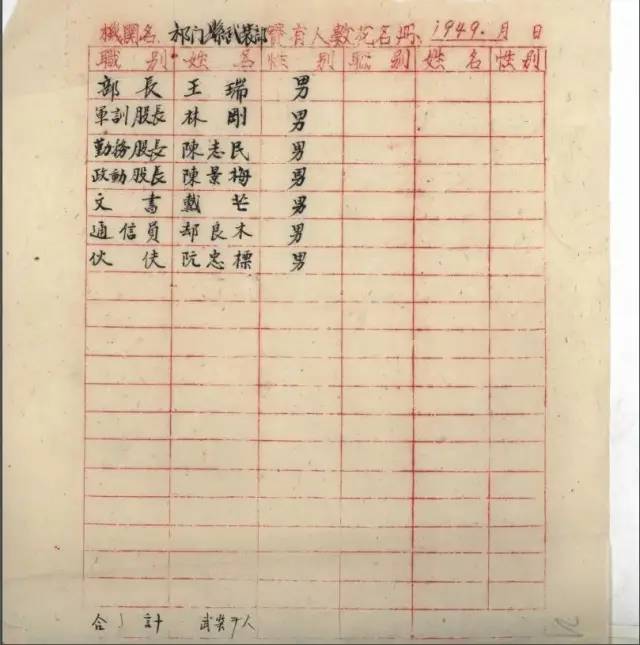 機関名 祁门縣武装部實有人数花名册 1949.月 日
職别 姓名 性别 職别 姓名 性别
部長 王瑞 男
軍訓股長 林剛 男
勤務股長 陳志民 男
政動股長 陳景梅 男
文書 戴芒 男
通信員 却良木 男
伙伕 阮忠標 男
合計